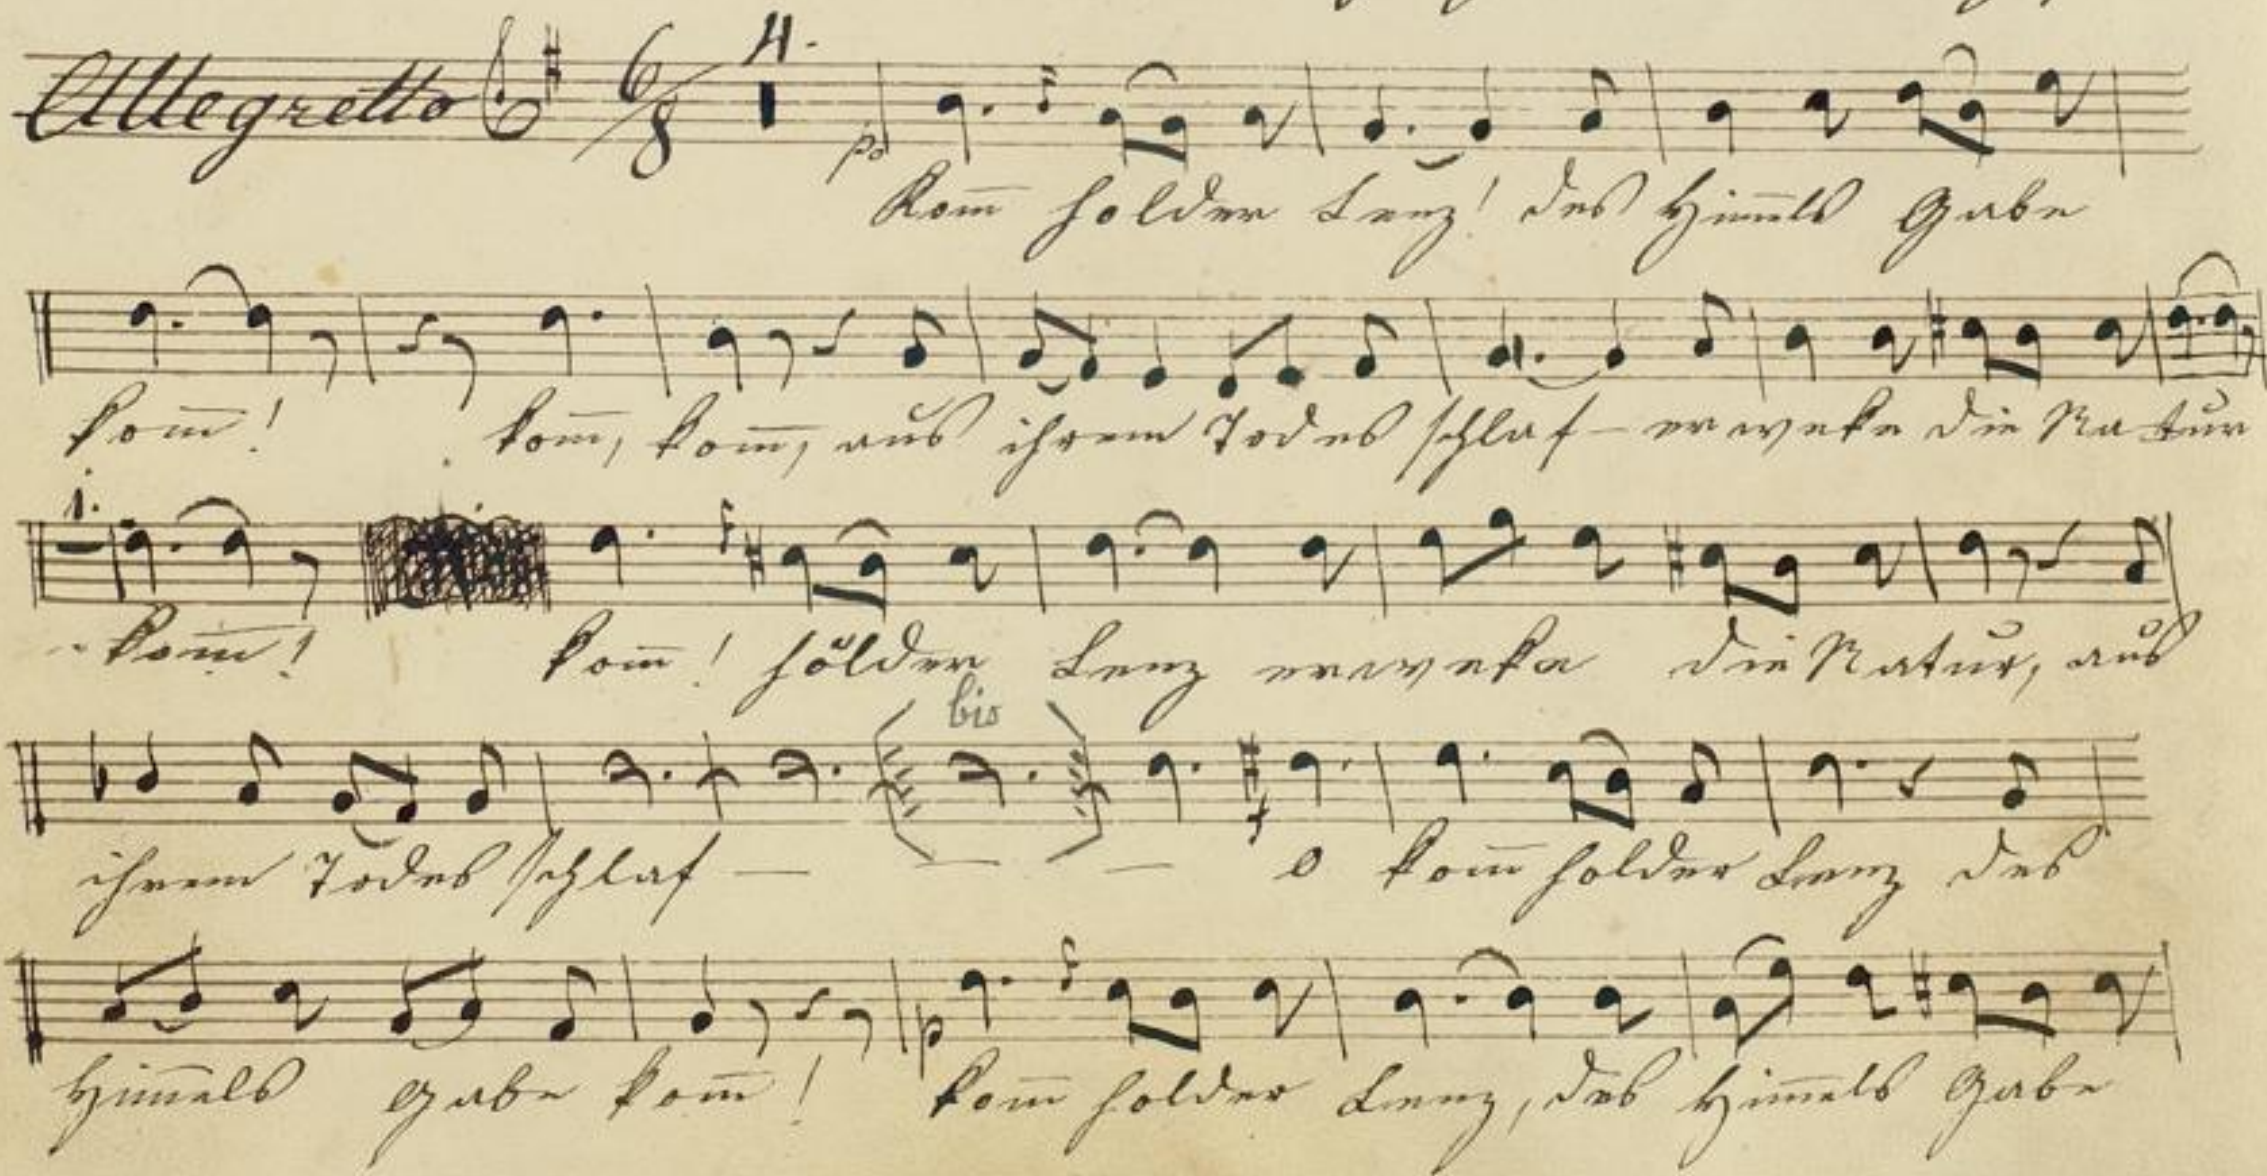 Allegretto 6/8 4. po
Kom̅ holder Lenz! des Him̅els Gabe
kom̅! kom̅, kom̅, aus ihrem Todes schlaf – erweke die Natur
1.
kom̅! kom̅! holder Lenz erweke die Natur, aus
bis
ihrem Todes schlaf — — — o kom̅ holder Lenz des
p
Him̅els Gabe kom̅! kom̅ holder Lenz, des Him̅els Gabe